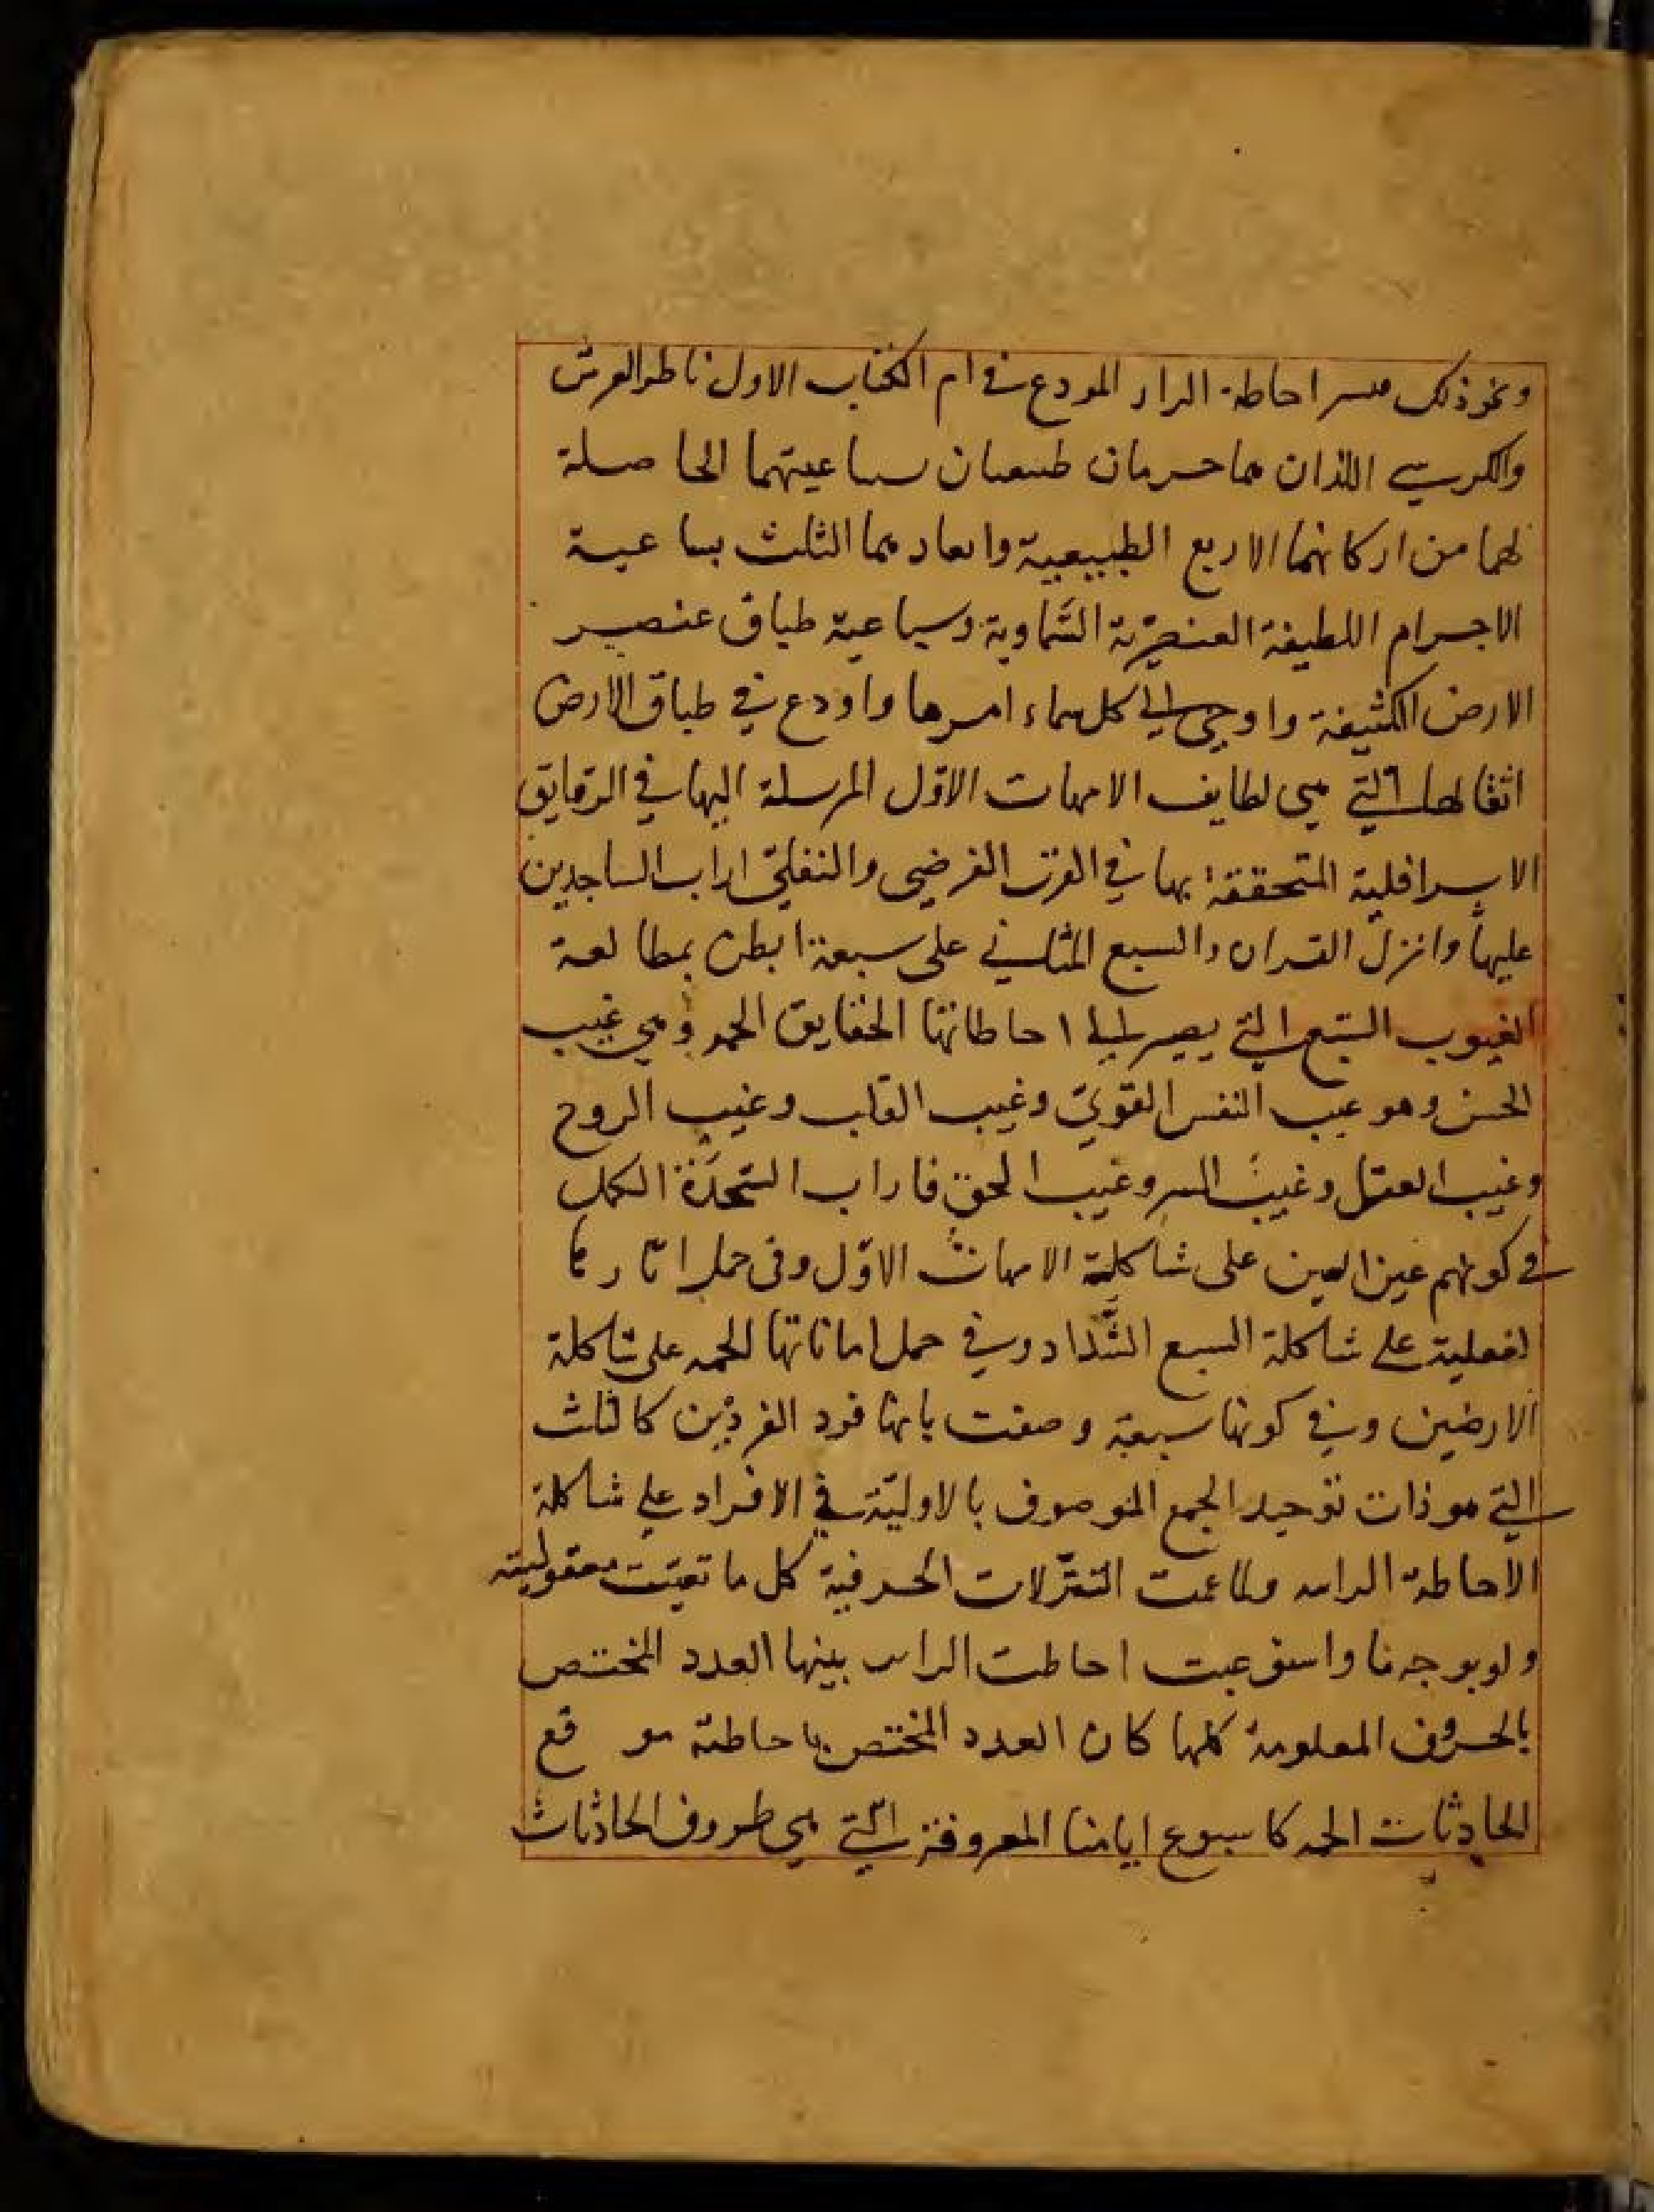 ونحو ذلك فسر احاطة الراء المودع في ام الكتاب الاول ناط والعرش
والكرسي اللذان هما حرمان طبيعيان سباعيتهما الحاصلة
لهما من اركانهما الاربع الطبيعية وابعادهما الثلث بسباعية
الاجرام اللطيفة العنصرية السماوية وسباعية طباق عنصر
الارض الكثيفة واوحى الى كل سماء امرها واودع في طباق الارض
اثقالها التي هي لطايف الامهات الاول المرسلة اليها في الرقايق
الاسرافلية المتحققة بها في القرب الفرضي والنفلي اراب الساجدين
عليها وانزل القران والسبع المثاني على سبعة ابطن بمطالعة
الغيوب السبع التي يصير احاطاتها الحقايق الحمه وهي غيب
الحسن وهو غيب النفس القوي وغيب القلب وغيب الروح
وغيب العقل وغيب السر وغيب الحق فاراب السجدة الكمل
في كونهم عين العين على شاكلة الامهات الاول وفي حمل اثارها
لفعلية على شاكلة السبع الشداد وفي حمل اماناتها الحمه على شاكلة
الارضين وفي كونها سبعة وصفت بانها فرد الفردين كالثلث
التي هو ذات توحيد الجمع الموصوف بالاولية في الافراد على شاكلة
الاحاطة الرايه ولما عمت التنزلات الحرفية كل ما تعينت معقوليته
ولو بوجه ما واستوعبت احاطت الراء بينها العدد المختص
بالحروف المعلومة كلها كان العدد المختص باحاطة مو قع
الحادثات الحمه كاسبوع ايامنا المعروفة التي هي ظروف الحادثات